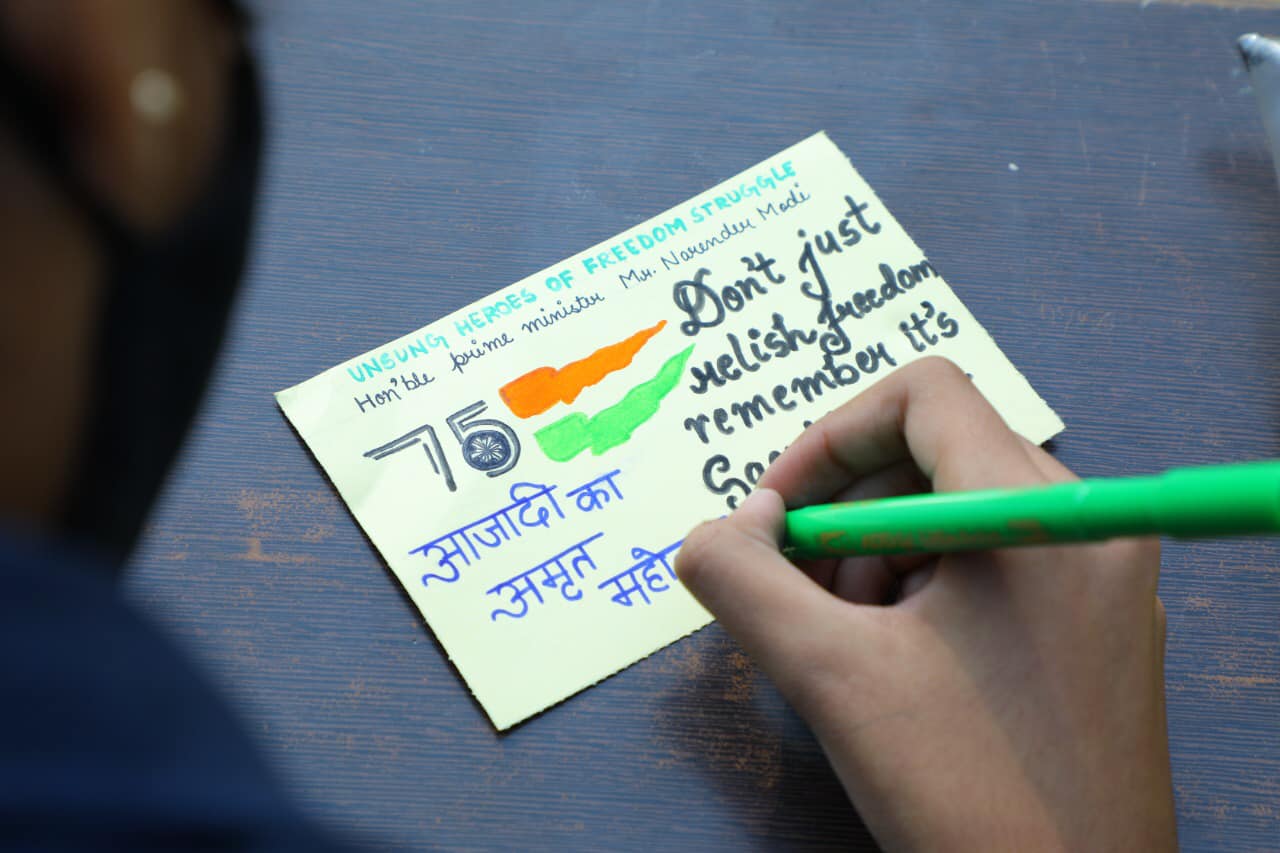 UNSUNG HEROES OF FREEDOM STRUGGLE
Hon'ble prime minister Mr. Narender Modi
Don't just
relish freedom
remember it's
75
आजादी का
अमृत